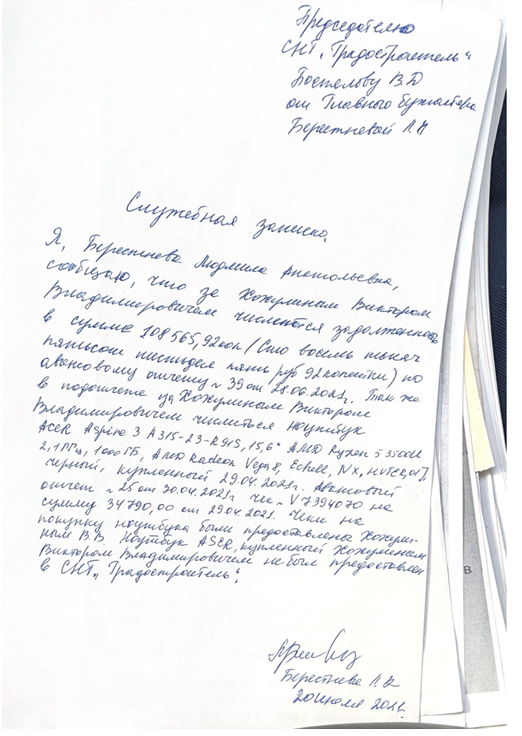 Председателю
СНТ „Градостроитель“
Поспелову В.Д
от Главного бухгалтера
Берестневой Л.А
Служебная записка.
Я, Берестнева Людмила Анатольевна,
сообщаю, что за Хохулиным Виктором
Владимировичем числится задолженность
в сумме 108 565,92коп (Сто восемь тысяч
пятьсот шестьдеся пять руб 92копейки) по
авансовому отчету № 39 от 28.06.2021г. Так же
в подотчете за Хохулиным Виктором
Владимировичем числиться ноутбук
Acer Aspire 3 A315-23-R9IS, 15,6" AMD Ryzen 5 3500U
2,1ГГц, 1000ГБ, AMD Radeon Vega 8, Eshell, NX,
черный, купленный 29.04.2021г. Авансовый
отчет № 25 от 30.04.2021г чек № V7394070 на
сумму 34790,00 от 29.04.2021. Чеки на
покупку ноутбука были предоставлены Хохули-
ным В.В. Ноутбук ASER, купленный Хохулиным
Виктором Владимировичем не был предоставлен
в СНТ „Градостроитель“.
Берестнева Л.А
20 июля
В